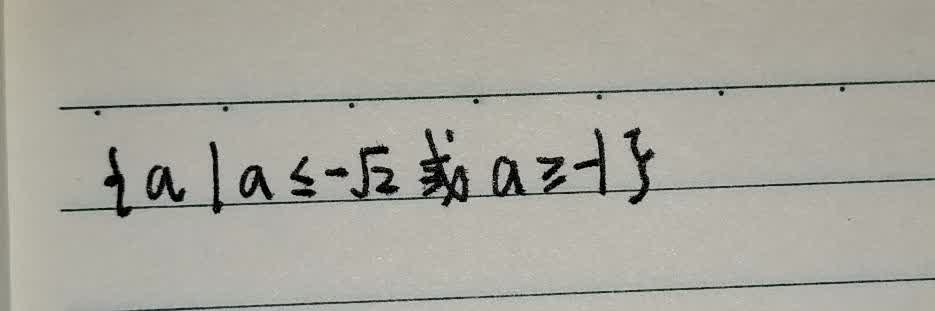 {a|a≤-√2或a≥-1}